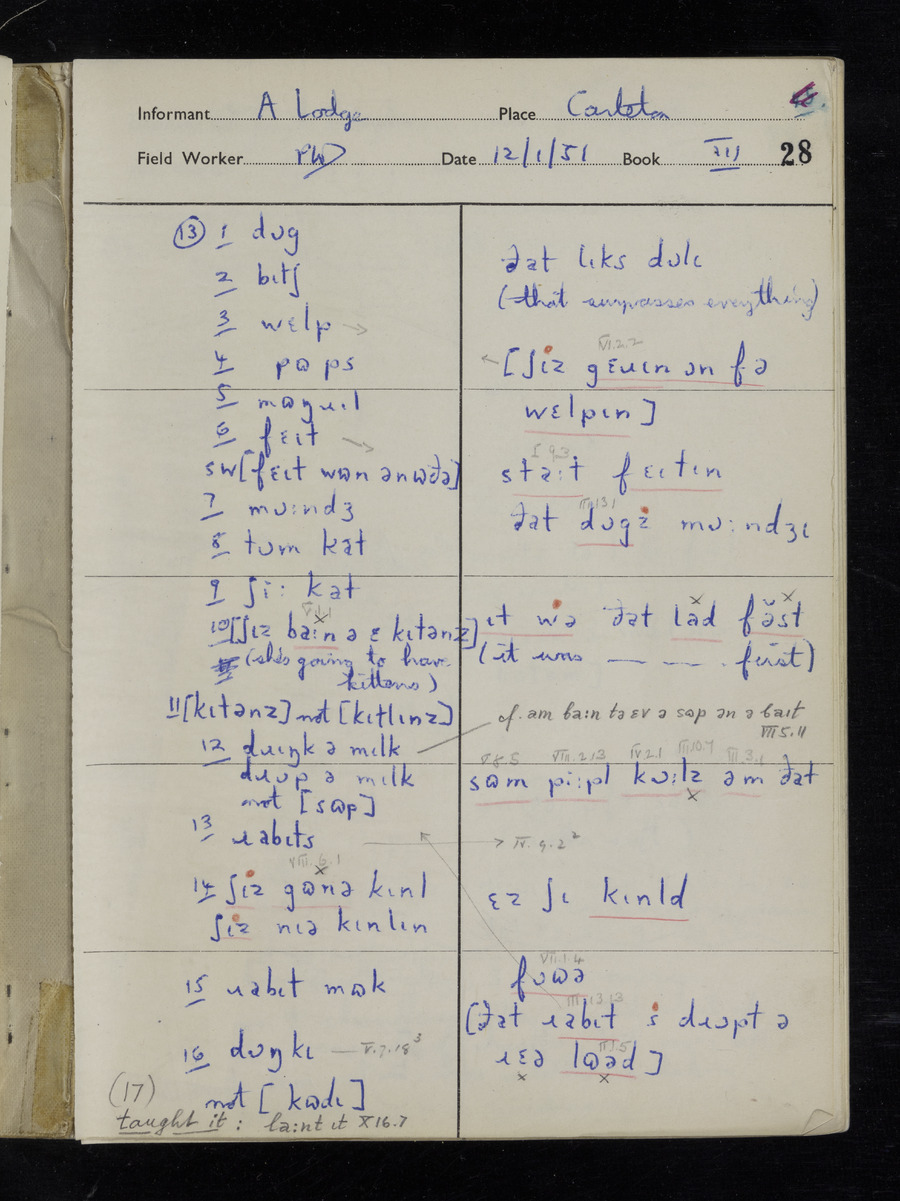 Informant A Lodge Place Carleton
Field Worker PW Date 12/1/51 Book III 28
⑬ 1 dʊg
2 bɪtʃ
3 wɛlp →
4 pɷps
5 mɷŋɹɪl
6 fɛɪt →
sw[fɛɪt wɷn ənɷðə]
7 mʊ:ndʒ
8 tʊm kat
9 ʃi: kat
V.1.1
10 [ʃɪz ba:n ə ɛ kɪtənz]
(she's going to have
kittens)
11 [kɪtənz] not [kɪtlɪnz]
12 dɹɪŋk ə mɪlk
dɹɔp ə mɪlk
not [sɷp]
13 ɹabɪts → IV.9.2²
VIII.6.1
14 ʃɪz gɷnə kɪnl
ʃɪz nɪə kɪnlɪn
15 ɹabɪt mɷk
16 dʊŋkɪ — V.7.18³
not [kɷdɪ]
(17)
taught it: la:nt ɪt X16.7
ðat lɪks dʊlɪ
(that surpasses everything)
VI.2.2
← [ʃɪz gɛɹɪn ən fə
wɛlpɪn]
I 9.3
sta:t fɛɪtɪn
III.13.1
ðat dʊgz mʊ:ndʒɪ
ɪt wə ðat lad fəst
(it was — — . first)
cf. am ba:n tə ɛv ə sɷp ən ə baɪt
VII 5.11
V.8.5 VIII.2.13 IV.2.1 III.10.7 III.3.1
sɷm pi:pl kʊ:lz əm ðat
ɛz ʃɪ kɪnld
VII.1.4
fʊɷə
III.13.13
[ðat ɹabɪt s dɹɔpt ə
ɹɛə lɷəd]